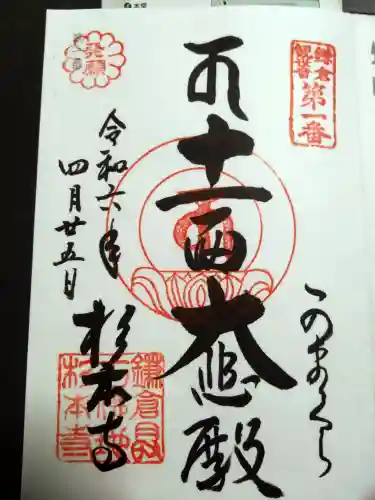 鎌倉
観音
第一番
かまくら
十一面大悲殿
発願
令和六年
四月廿五日
杉本寺
鎌倉
杉本寺